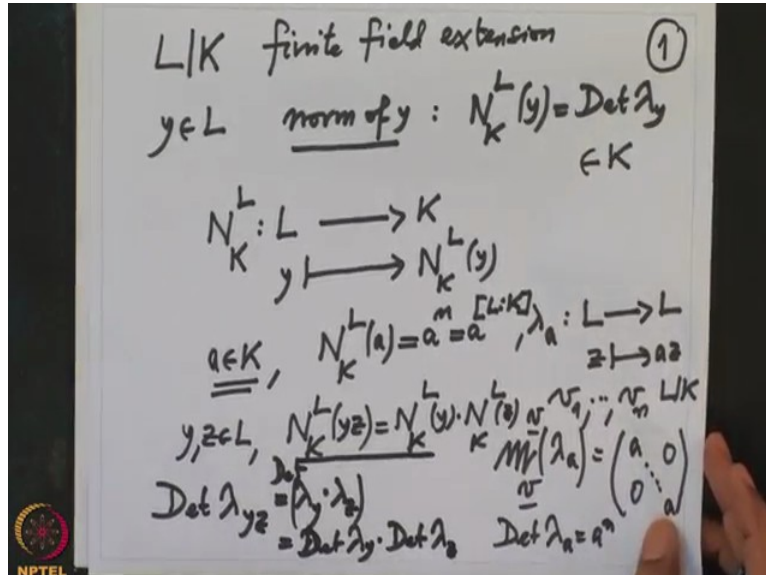 L|K finite field extension ①
y∈L norm of y : N_K^L(y) = Det λ_y
∈ K
N_K^L : L ⟶ K
y ⟼ N_K^L(y)
a∈K, N_K^L(a) = a^n = a^[L:K], λ_a : L ⟶ L
z ⟼ az
y,z∈L, N_K^L(yz) = N_K^L(y) · N_K^L(z)
v v_1, ..., v_n L|K
M_v^v(λ_a) = (a 0
0 a)
Det λ_yz = Det(λ_y · λ_z)
= Det λ_y · Det λ_z
Det λ_a = a^n
NPTEL